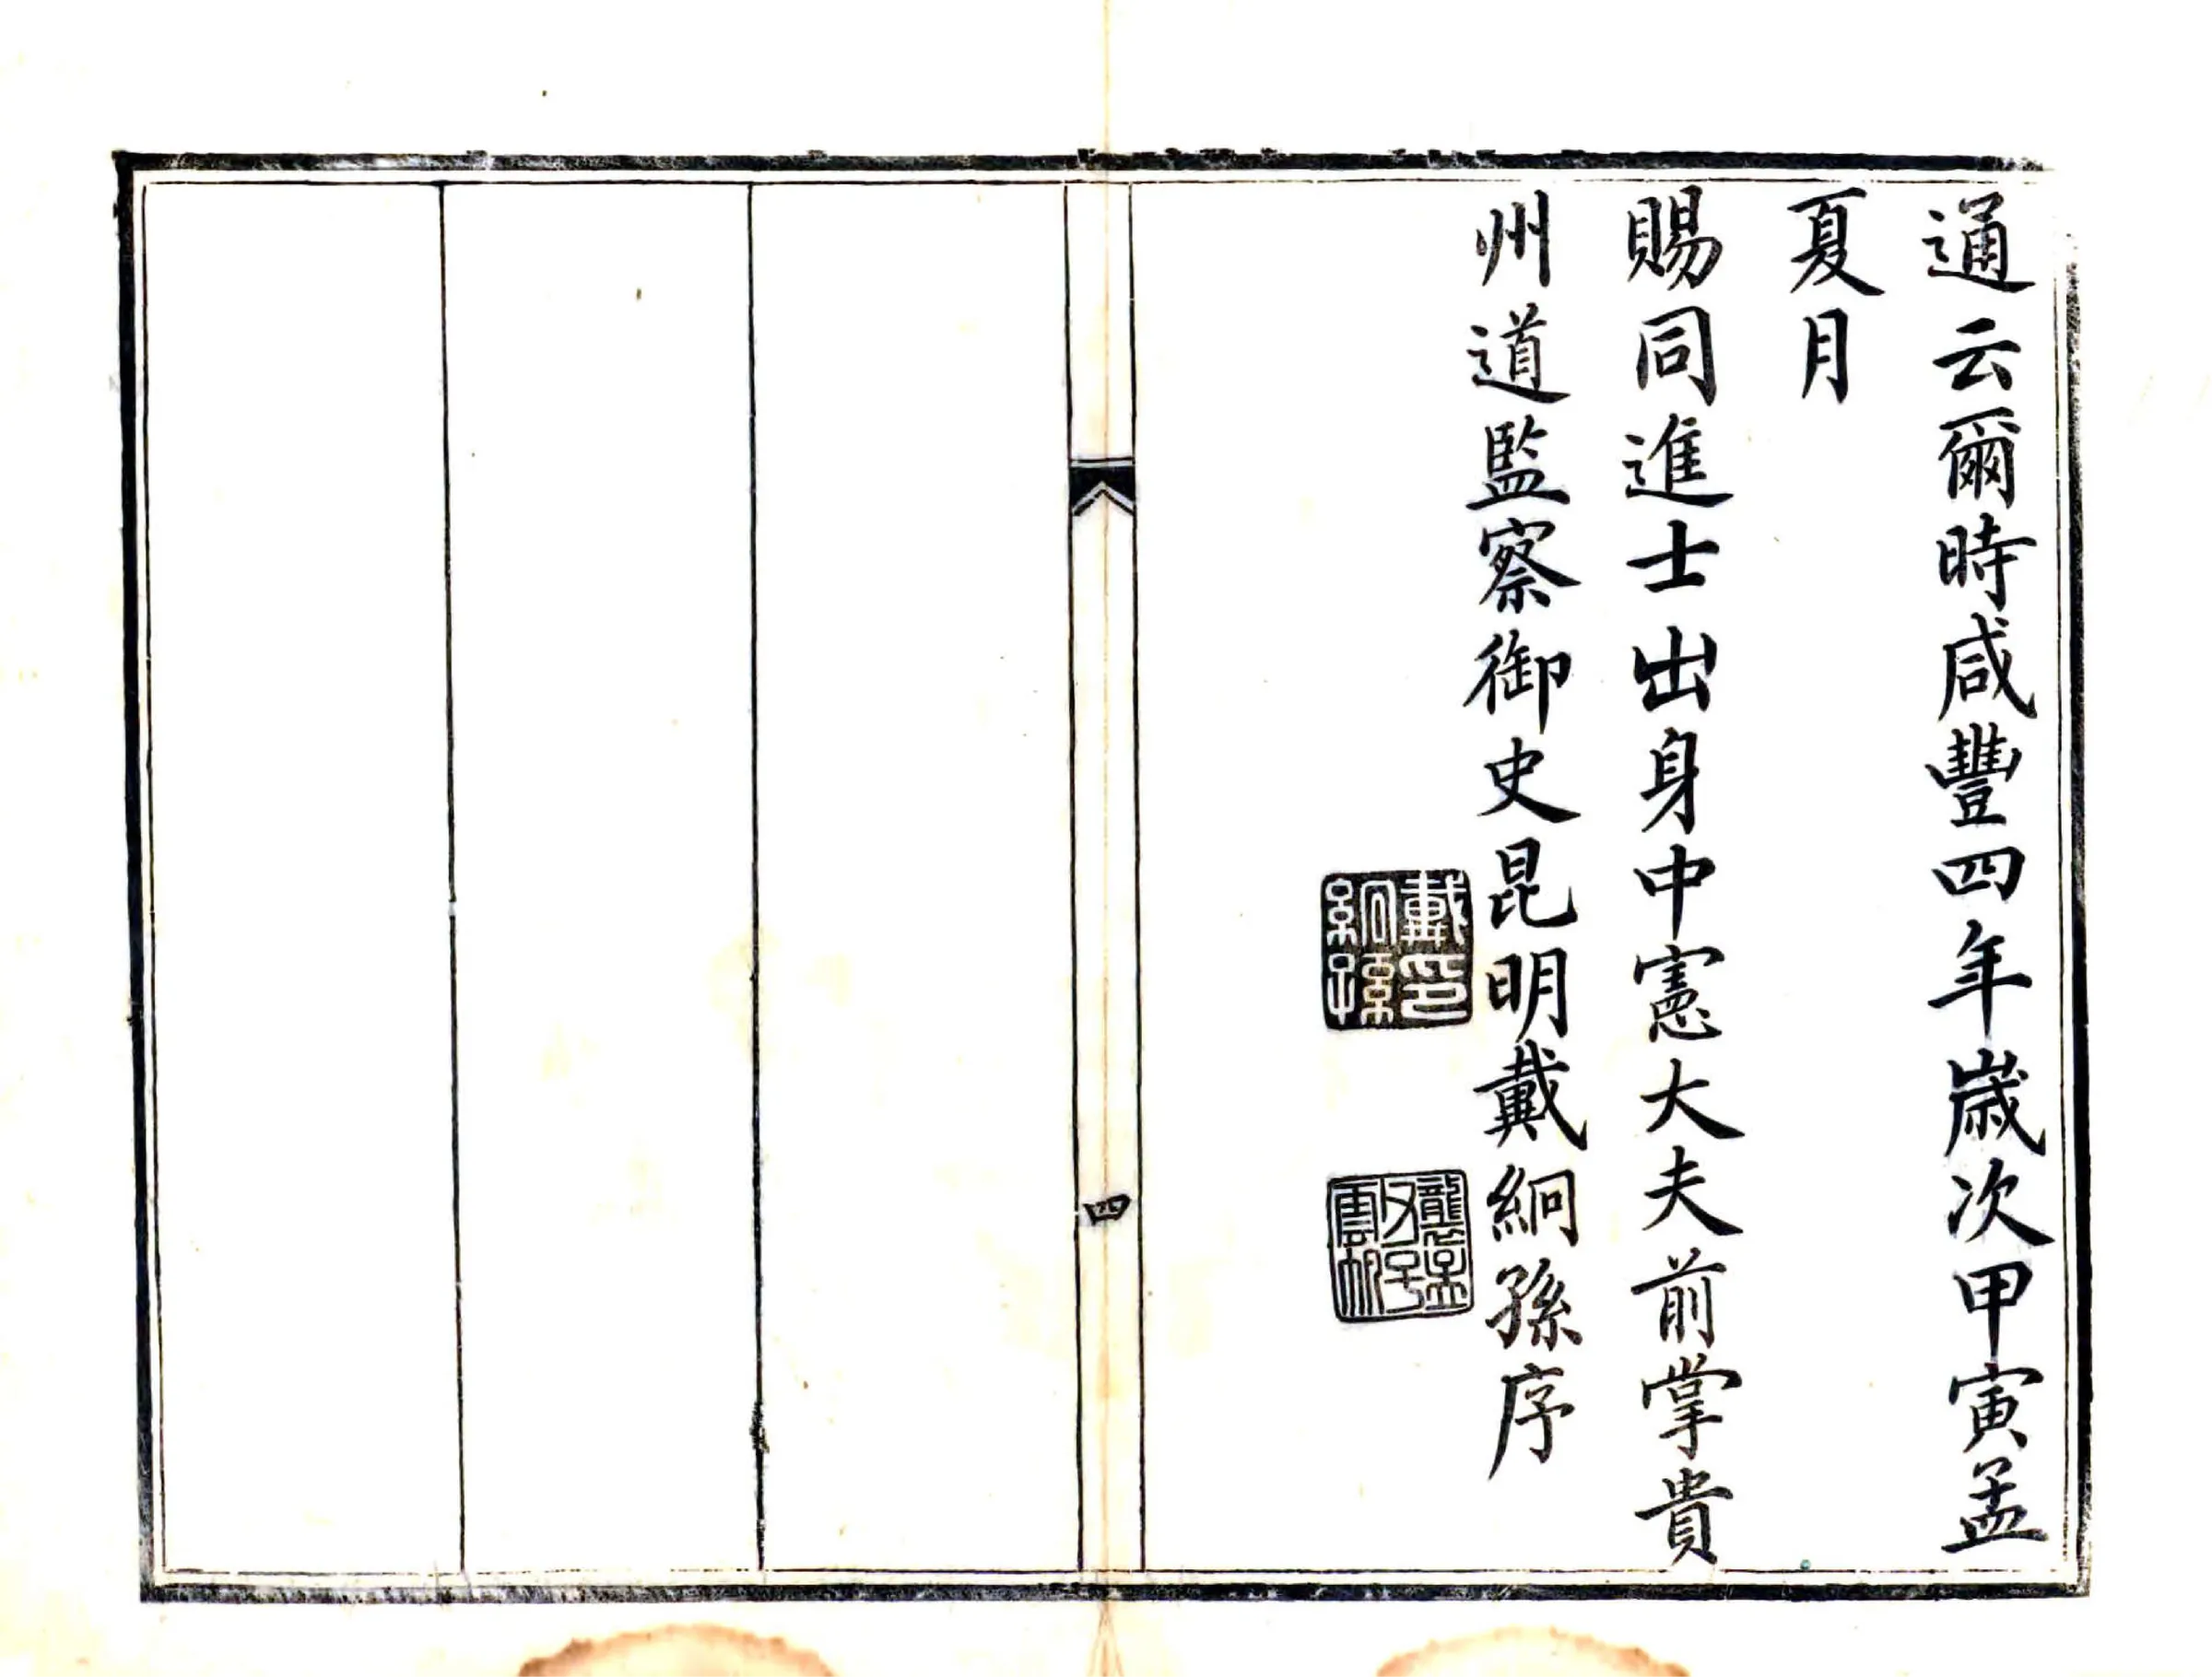 通云爾時咸豐四年歲次甲寅孟
夏月
賜同進士出身中憲大夫前掌貴
州道監察御史昆明戴絅孫序
戴印
絅孫
四